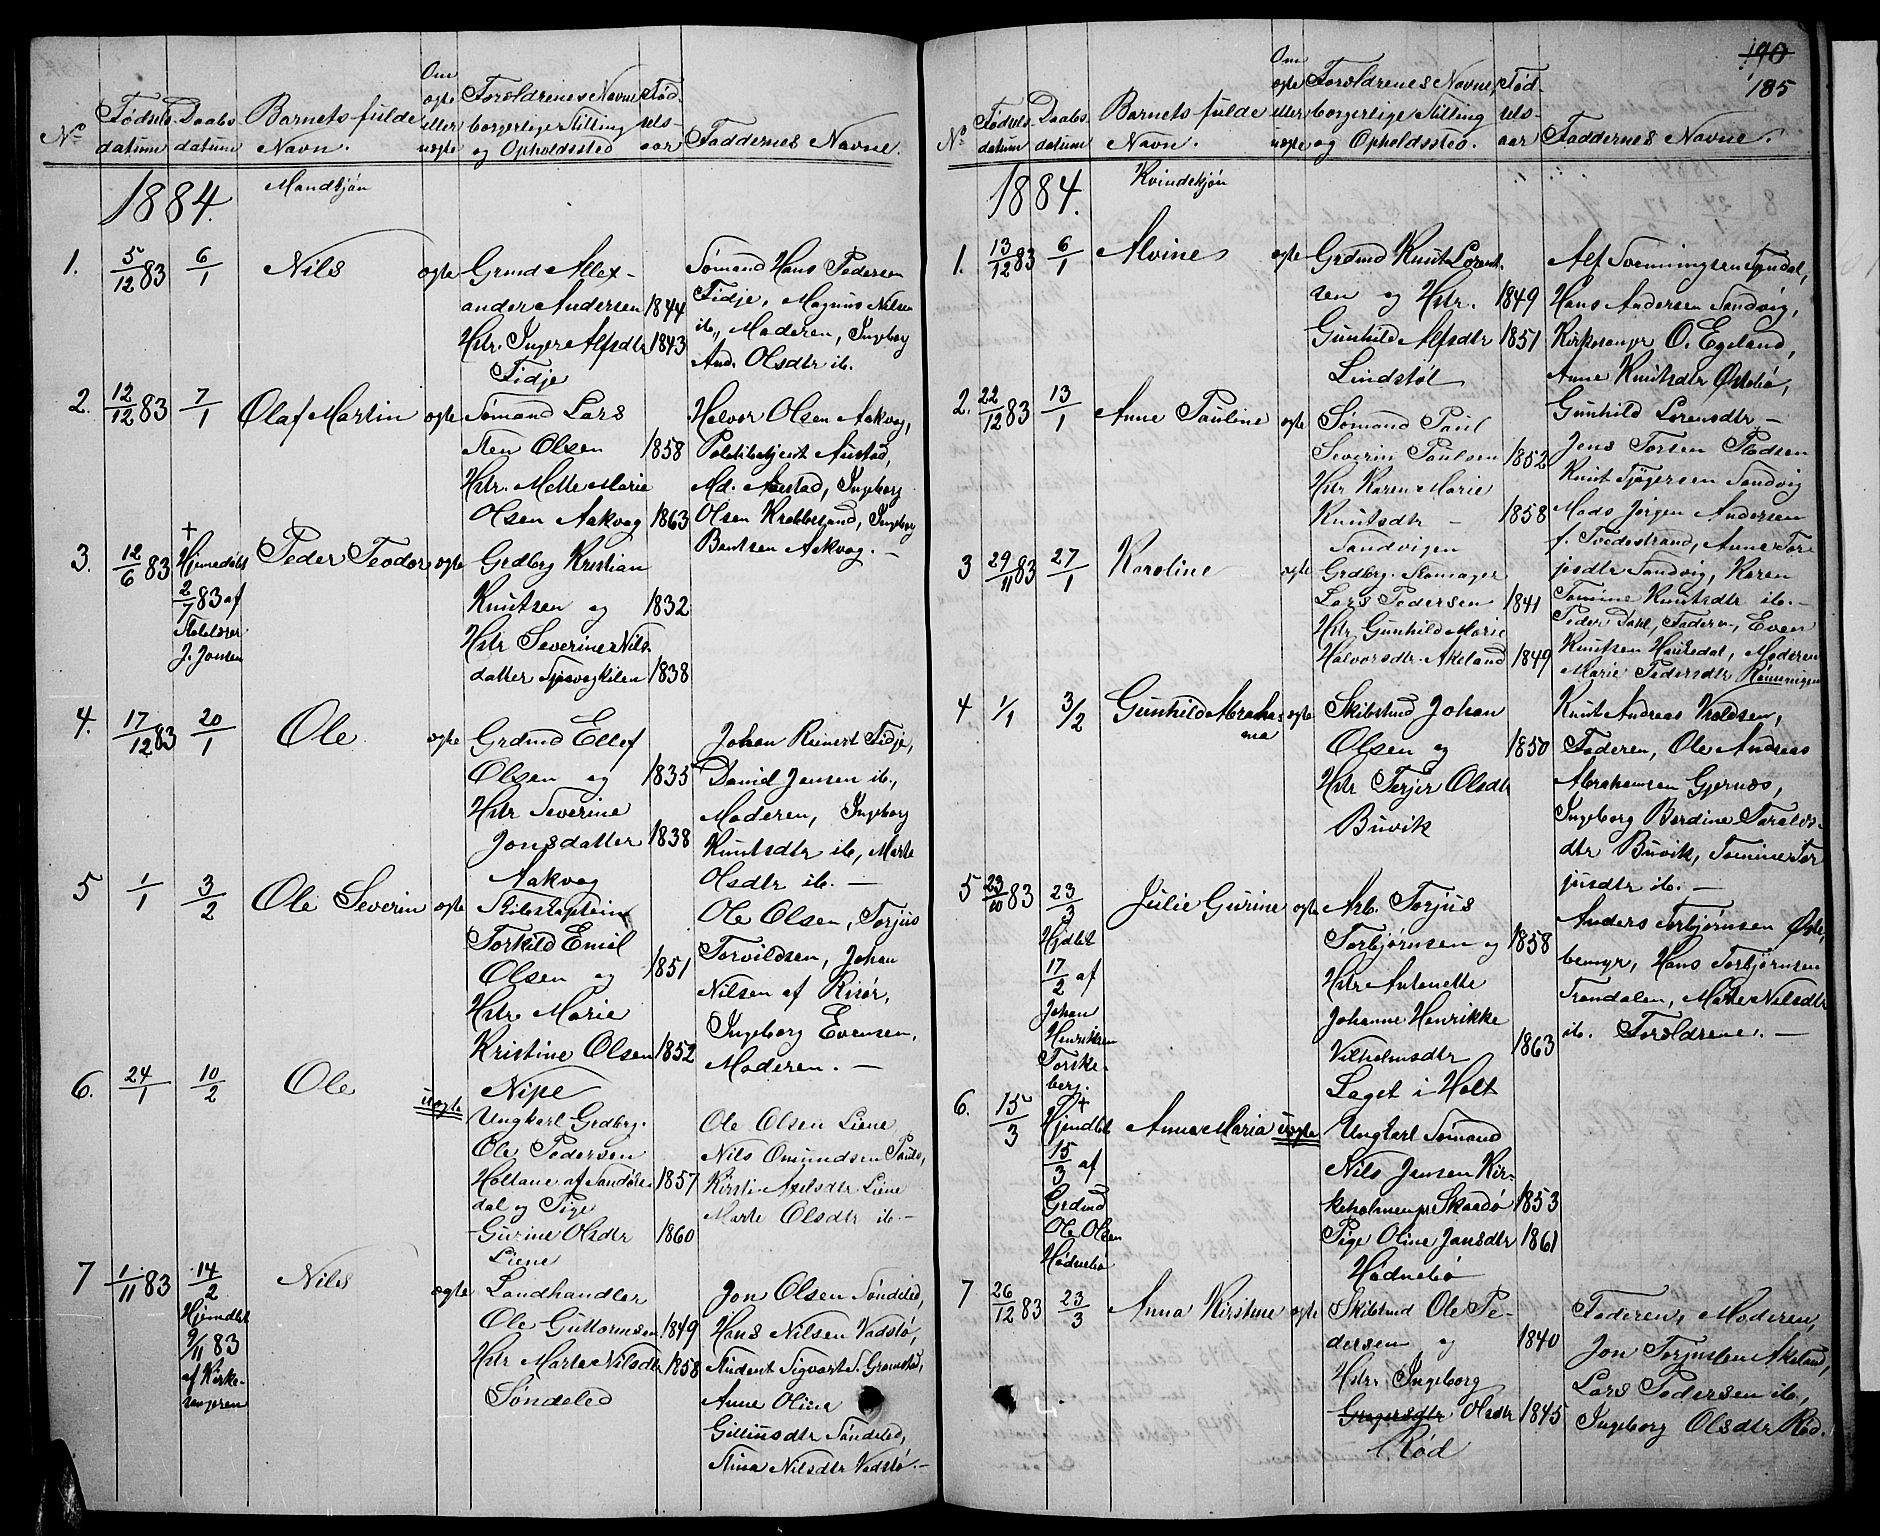 190
185
No
Fødsels-
datum
Daabs-
datum
Barnets fulde
Navn.
Om
ægte
eller
uægte
Forældrenes Navne
borgerlige Stilling
og Opholdssted
Fød-
sels-
aar
Faddernes Navne.
1884.
Mandkjøn
1.
5/12 83
6/1
Nils
ægte
Grmd Allex-
ander Andersen 1844
Hstr. Inger Alfsdtr 1843
Fidje
Sømand Hans Pedersen
Fidje, Magnus Nilsen
ib., Moderen, Ingeborg
And. Olsdtr ib.
2.
12/12 83
7/1
Olaf Martin
ægte
Sømand Lars
Olsen 1858
Hstr. Mette Marie
Olsen Aakvag 1863
Halvor Olsen Aakvag,
Politibetjent Austad,
Md. Austad, Ingeborg
Olsen Krabbesund, Ingeborg
Bentsen Aakvag. —
3.
12/6 83
+
Hjemedøbt
2/7 83 af
Skolelærer
J. Jonsen
Peder Teodor
ægte
Grdbrg Kristian
Knutsen og 1832
Hstr Severine Nils-
datter 1838
4.
17/12 83
20/1
Ole
ægte
Grdmd Ellef
Olsen og 1835
Hstr Severine
Jonsdatter 1838
Aakvag
Johan Reinert Fidje,
David Jensen ib.,
Moderen, Ingeborg
Knutsdtr ib, Marte
Olsdtr ib. —
5
1/1
3/2
Ole Severin
ægte
Skibskaptein
Torkild Emil
Olsen og 1851
Hstr Marie
Kristine Olsen 1852
Nipe
Ole Olsen, Torjus
Torvildsen, Johan
Nilsen af Risør,
Ingeborg Evensen,
Moderen. —
6.
24/1
10/2
Ole
uægte
Ungkarl Grdbrg.
Ole Pedersen
Holtane af Sandøke-
dal og Pige 1857
Gurine Olsdtr 1860
Liene
Ole Olsen Liene
Nils Omundsen
Kirsti Axelsdtr Liene
Marte Olsdtr ib. —
7
1/11 83
14/2
Hjemdbt
9/11 83
af Kirke-
sangeren
Nils
ægte
Landhandler
Ole Guttormsen 1849
Hstr Marte Nilsdtr 1858
Søndeled
Jon Olsen Søndeled,
Hans Nilsen Vadstø,
Student Sigvart S. Gramstad,
Anne Oline
Gitliusdtr Søndeled,
Stina Nilsdtr Vadstø. —
No
Fødsels-
datum
Daabs-
datum
Barnets fulde
Navn.
Om
ægte
eller
uægte
Forældrenes Navne,
borgerlige Stilling
og Opholdssted.
Fød-
sels-
aar
Faddernes Navne.
1884.
Kvindekjøn
1.
13/12 83
6/1
Alvine
ægte
Grdmd Knut Lorent-
sen og Hstr. 1849
Gunhild Alfsdtr 1851
Lindstøl
Alf Svenningsen Tyndal,
Hans Andersen Sandvig,
Kirkesanger O. Egeland,
Anne Knutsdtr Østebø,
Gunhild Lorensdtr —
2.
22/12 83
13/1
Anne Pauline
ægte
Sømand Paul
Severin Paulsen 1852
Hstr Karen Marie
Knutsdtr — 1858
Sandvigen
Jens Torsen Plødsen
Knut Tjøgersen Sandvig
Mads Jørgen Andersen
f. Tvedestrand, Anne Tor-
jusdtr Sandvig, Karen
Tomine Knutsdtr ib. —
3
29/11 83
27/1
Karoline
ægte
Grdbrg. Skomager
Lars Pedersen 1841
Hstr Gunhild Marie
Halvorsdtr Akeland 1849
Peder Dahl, Faderen, Even
Knutsen Haukedal, Moderen
Marie Pedersdtr Rønningen
4
1/1
3/2
Gunhild Abraha-
ma
ægte
Skibstmd Johan
Olsen og 1850
Hstr Terjer Olsdtr
Buvik
Knut Andreas Vroldsen,
Faderen, Ole Andreas
Abrahamsen Gjernæs,
Ingeborg Berdine Tarals-
dtr Buvik, Tomine Tor-
jusdtr ib. —
5
23/10 83
23/3
Hjdbt
17/2 af
Johan
Henriksen
Torske-
berg.
Julie Gurine
ægte
Arb. Torjus
Torbjørnsen og 1858
Hstr Antonette
Johanne Henrikke
Vilhelmsdtr 1863
Laget i Holt
Anders Torbjørnsen Øste-
bemyr, Hans Torbjørnsen
Trondalen, Marte Nilsdtr
ib. Forældrene. —
6.
15/3
+
Hjemdbt
15/3 af
Grdmd
Ole Olsen
Hødnebø
Anna Maria
uægte
Ungkarl Sømand
Nils Jensen Kir-
keholmen pr Skaadø 1853
Pige Oline Jansdtr 1861
Hødnebø
7
26/12 83
23/3
Anna Kirstine
ægte
Skibstmd Ole Pe-
dersen og 1840
Hstr. Ingeborg
Gregersdtr Olsdtr 1845
Rød
Faderen, Moderen,
Jon Torjussen Akeland,
Lars Pedersen ib,
Ingeborg Olsdtr Rød.